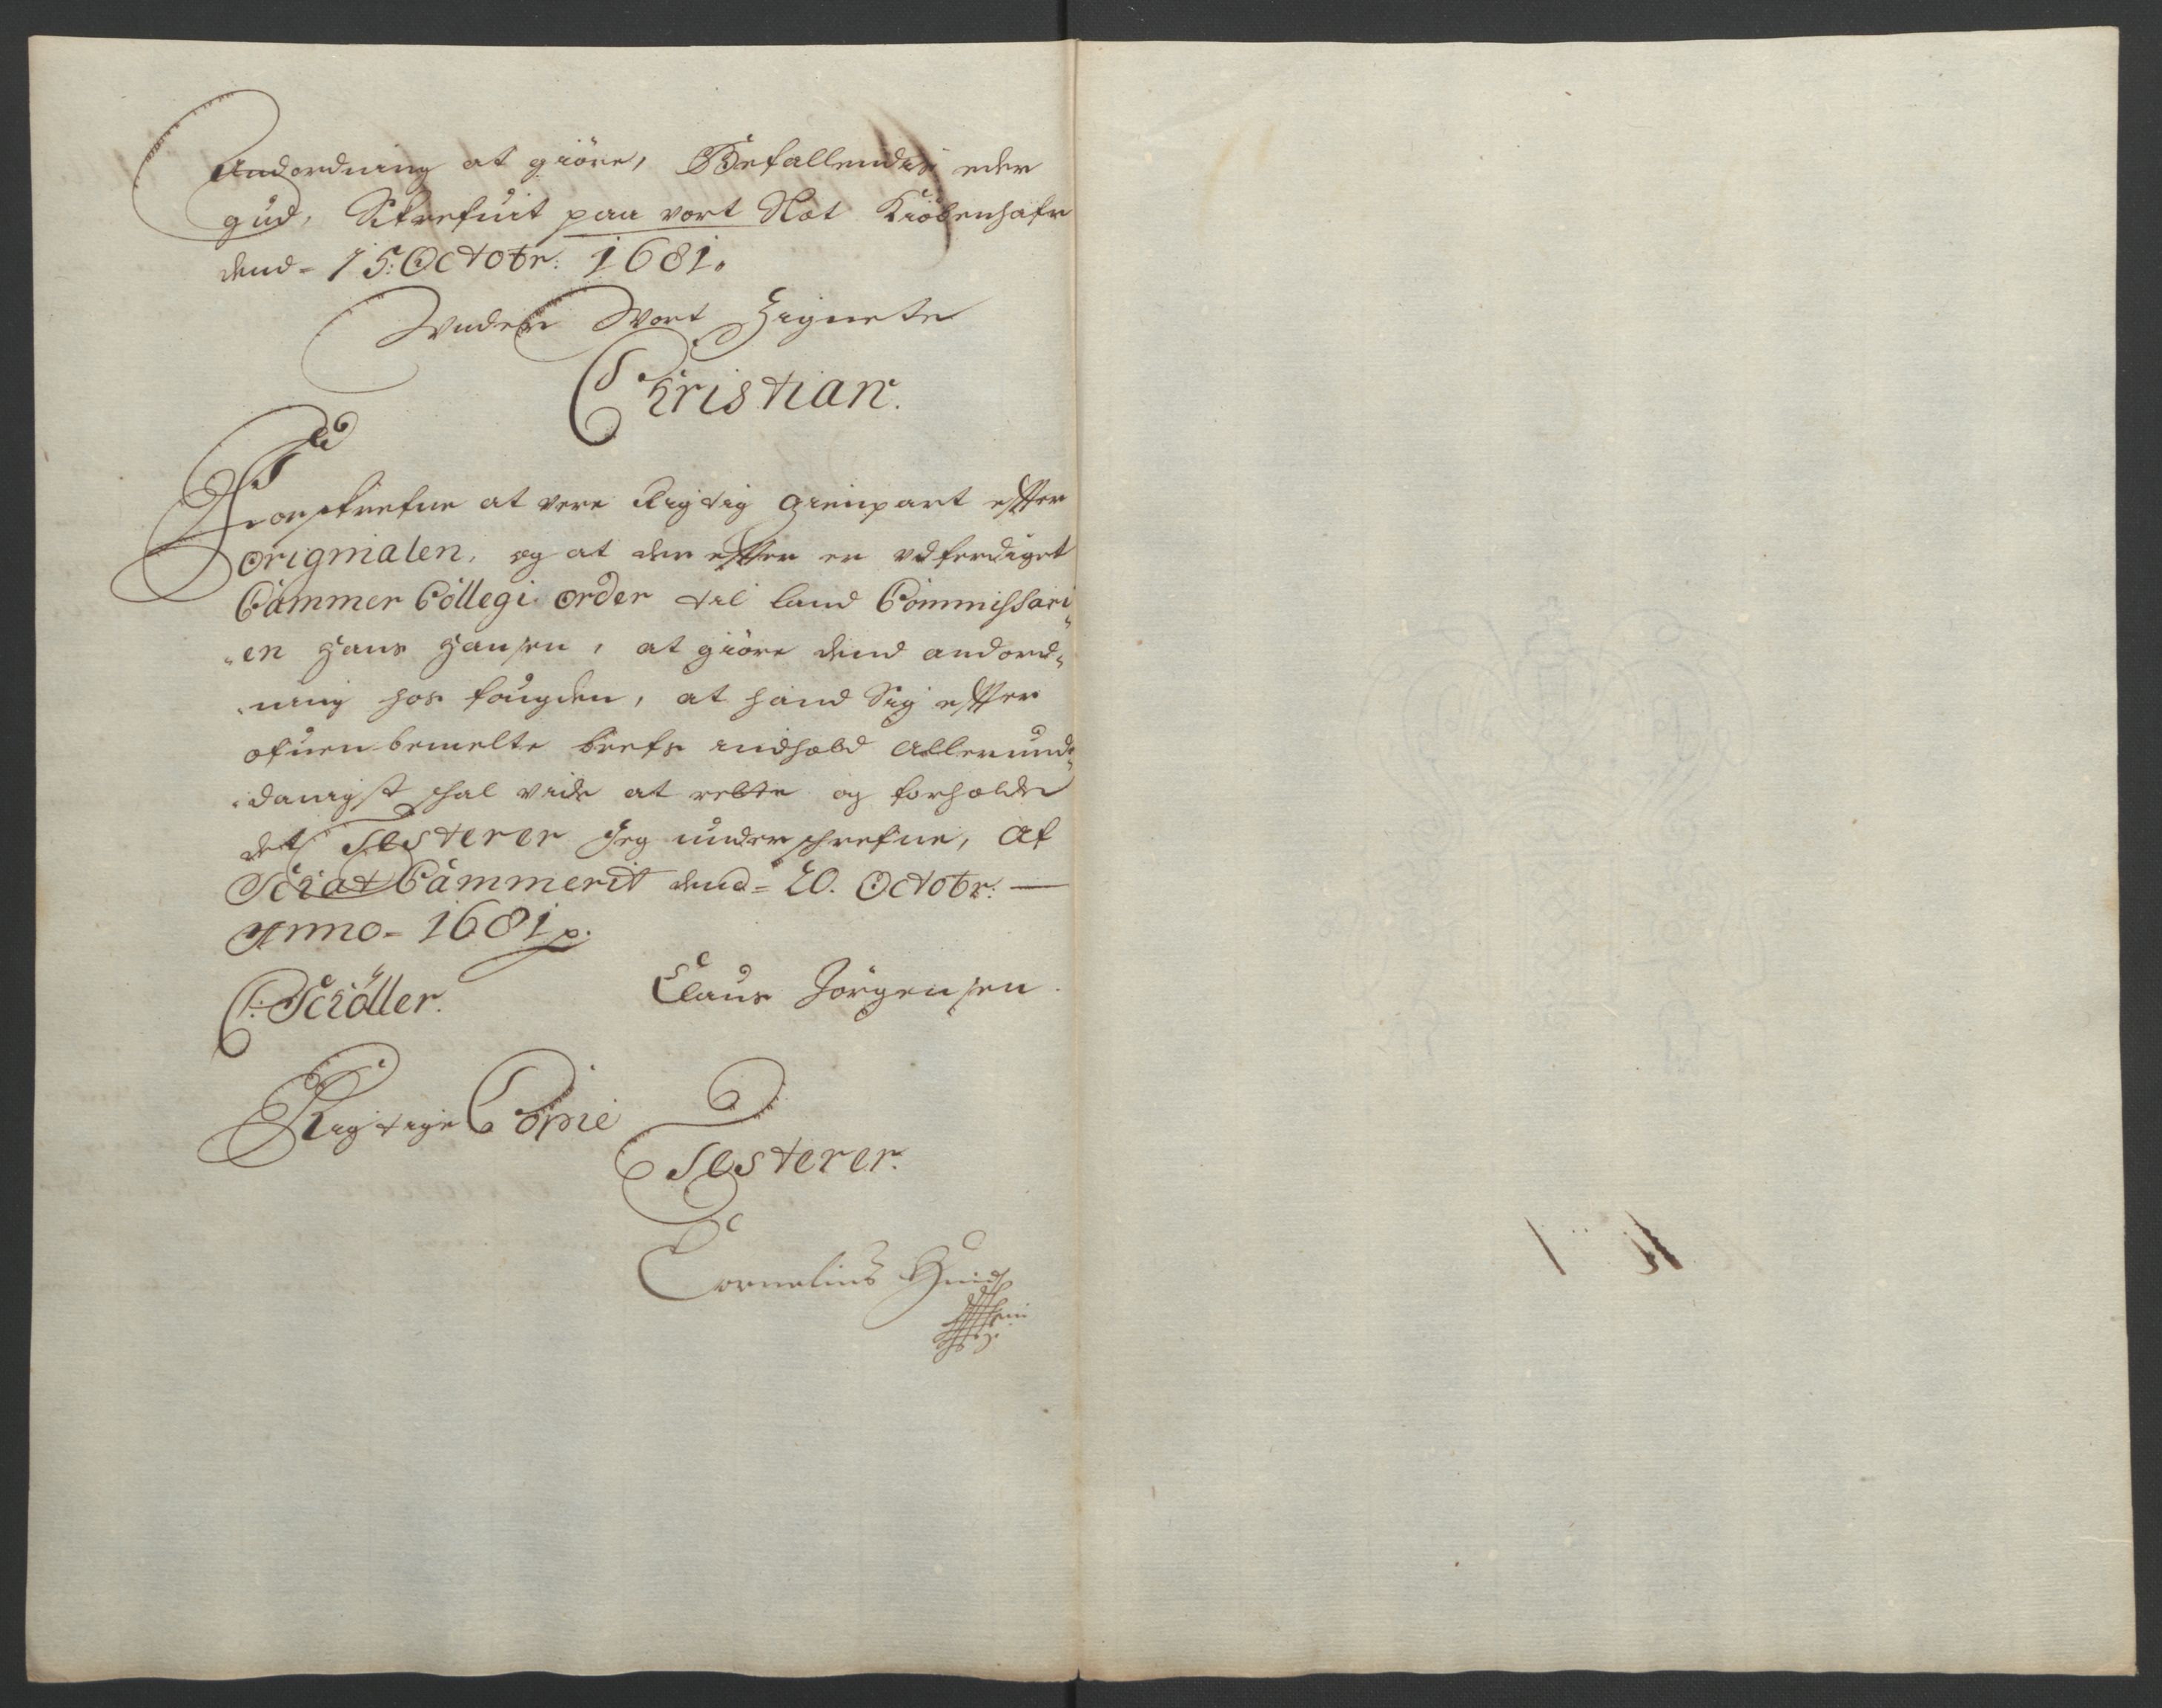 Andordning at giöre, Befallendis eder
gud, Skrefuit paa vort Slot Kiöbenhafn
dend= 15. Octobr: 1681.
Vnder Vort Zignete
Christian.
Forskrefne at vere Rigtig gienpart effter
originalen, og at der effter er vdferdiget
Cammer Collegi order til land Commissari
"en Hans Hansen, at giöre dend andord=
"ning hos fougden, at hand Sig effter
ofuenbemelte brefs indhold allerund=
"danigst schal vide at rette og forholde
det Testerer Jeg underschrefne, Af
Schat Cammerit dend= 20. Octobr:
Anno= 1681 p.
C: Schöller. Claus Jörgensen.
Rigtige Copie
Testerer.
Cornelius